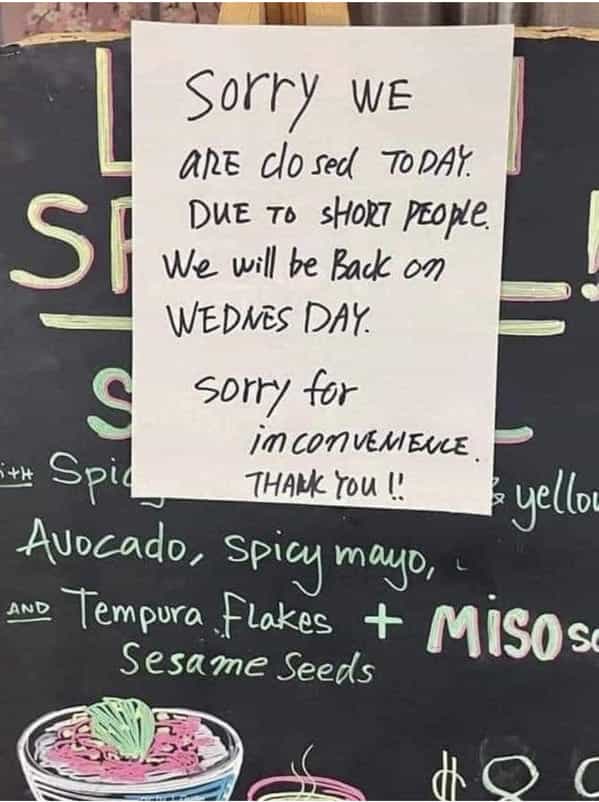 Sorry WE
ARE closed TODAY.
DUE TO SHORT PEOPLE.
We will be Back on
WEDNESDAY.
sorry for
inconVENIENCE.
THANK YOU !!
Avocado, spicy mayo,
AND Tempura Flakes + MISO
Sesame Seeds
$